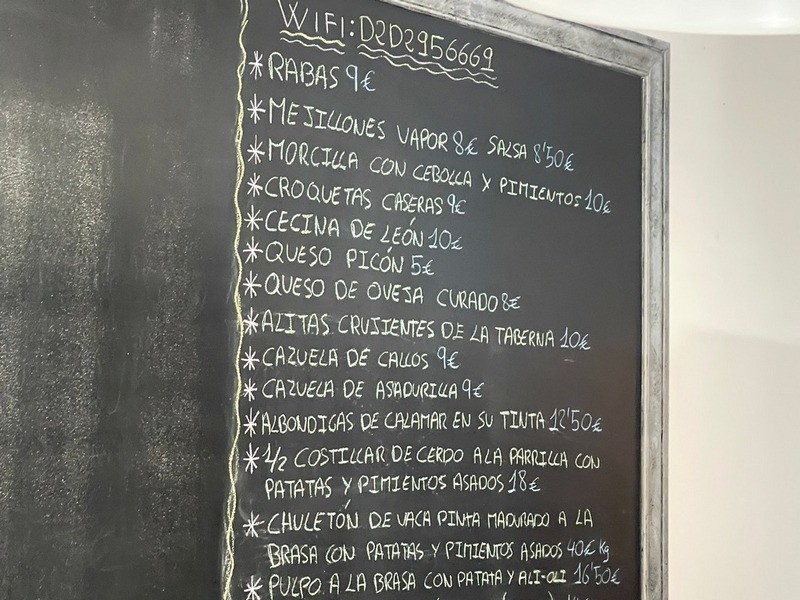 WIFI: D2D2956669
* RABAS 9€
* MEJILLONES VAPOR 8€ SALSA 8'50€
* MORCILLA CON CEBOLLA Y PIMIENTOS 10€
* CROQUETAS CASERAS 9€
* CECINA DE LEÓN 10€
* QUESO PICÓN 5€
* QUESO DE OVEJA CURADO 8€
* ALITAS CRUJIENTES DE LA TABERNA 10€
* CAZUELA DE CALLOS 9€
* CAZUELA DE ASADURILLA 9€
* ALBONDIGAS DE CALAMAR EN SU TINTA 12'50€
* 1/2 COSTILLAR DE CERDO A LA PARRILLA CON
PATATAS Y PIMIENTOS ASADOS 18€
* CHULETÓN DE VACA PINTA MADURADO A LA
BRASA CON PATATAS Y PIMIENTOS ASADOS 40€ Kg
* PULPO A LA BRASA CON PATATA Y ALI-OLI 16'50€